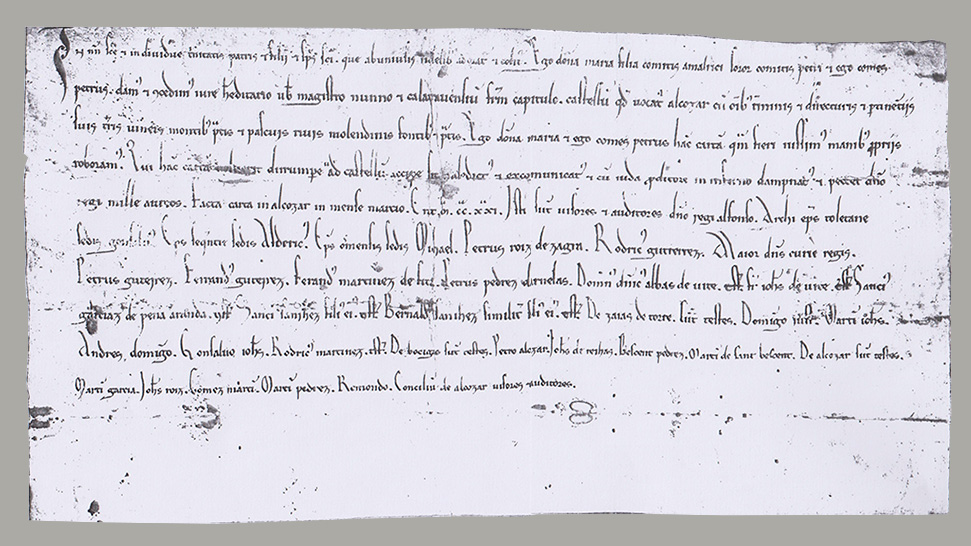 In nomine sancte et individue trinitatis patris et filii et sps sci. que abunivsis fidelib adorat et colit. Ego dona maria filia comitis amalrici soror comitis petri et ego comes
petrus. dam et iure hereditario vob magistro nunno et calatraventiu frm capitulo. castellu qd vocat alcozar cu oib tminis et directuris et ptinetijs
suis tris vineis montib ptis et pascuis rivis molendinis fontib et ptis. Ego dona maria et ego comes petrus hac carta qm fieri iussim manib pprijs
roboram. Qui hac carta dirumpe ad castellu sit maledict et excomunicat et cu iuda pditore in inferno dampnat et pectet dno
regi mille aureos. facta carta in alcozar in mense marcio. Era. m. cc. xxi. Isti sut visores et auditores dno regi alfonso. Archi eps toletane
sedis Eps segutin sedis Alderic. Eps oxmensis sedis Mihael. Petrus roiz de zagra. Rodric guterrez. Maior dns curie regis.
Petrus guterez. Ferrand guterez. ferrand martinez de Petrus pedrez darnelas. Domin abbas de vite. ts. fr. iohs de vite. ts. Sanci
garciaz de pena aranda. ts. Sanci sanchez fili ei. ts. Bernald sanchez similit fili ei. ts. De zaias de torre. sut testes. Domigo Marti iohs.
Andres domigo. Gonsaluo iohs. Rodric martinez. ts. De bocigas sut testes. Petro alcozar. Iohs de Bescent pedrez. Marti de sant bescent. De alcozar sut testes.
Marti garcia. Iohs roiz. Gomez marti. Marti pedrez. Remondo. Conciliu de alcozar visores auditores.